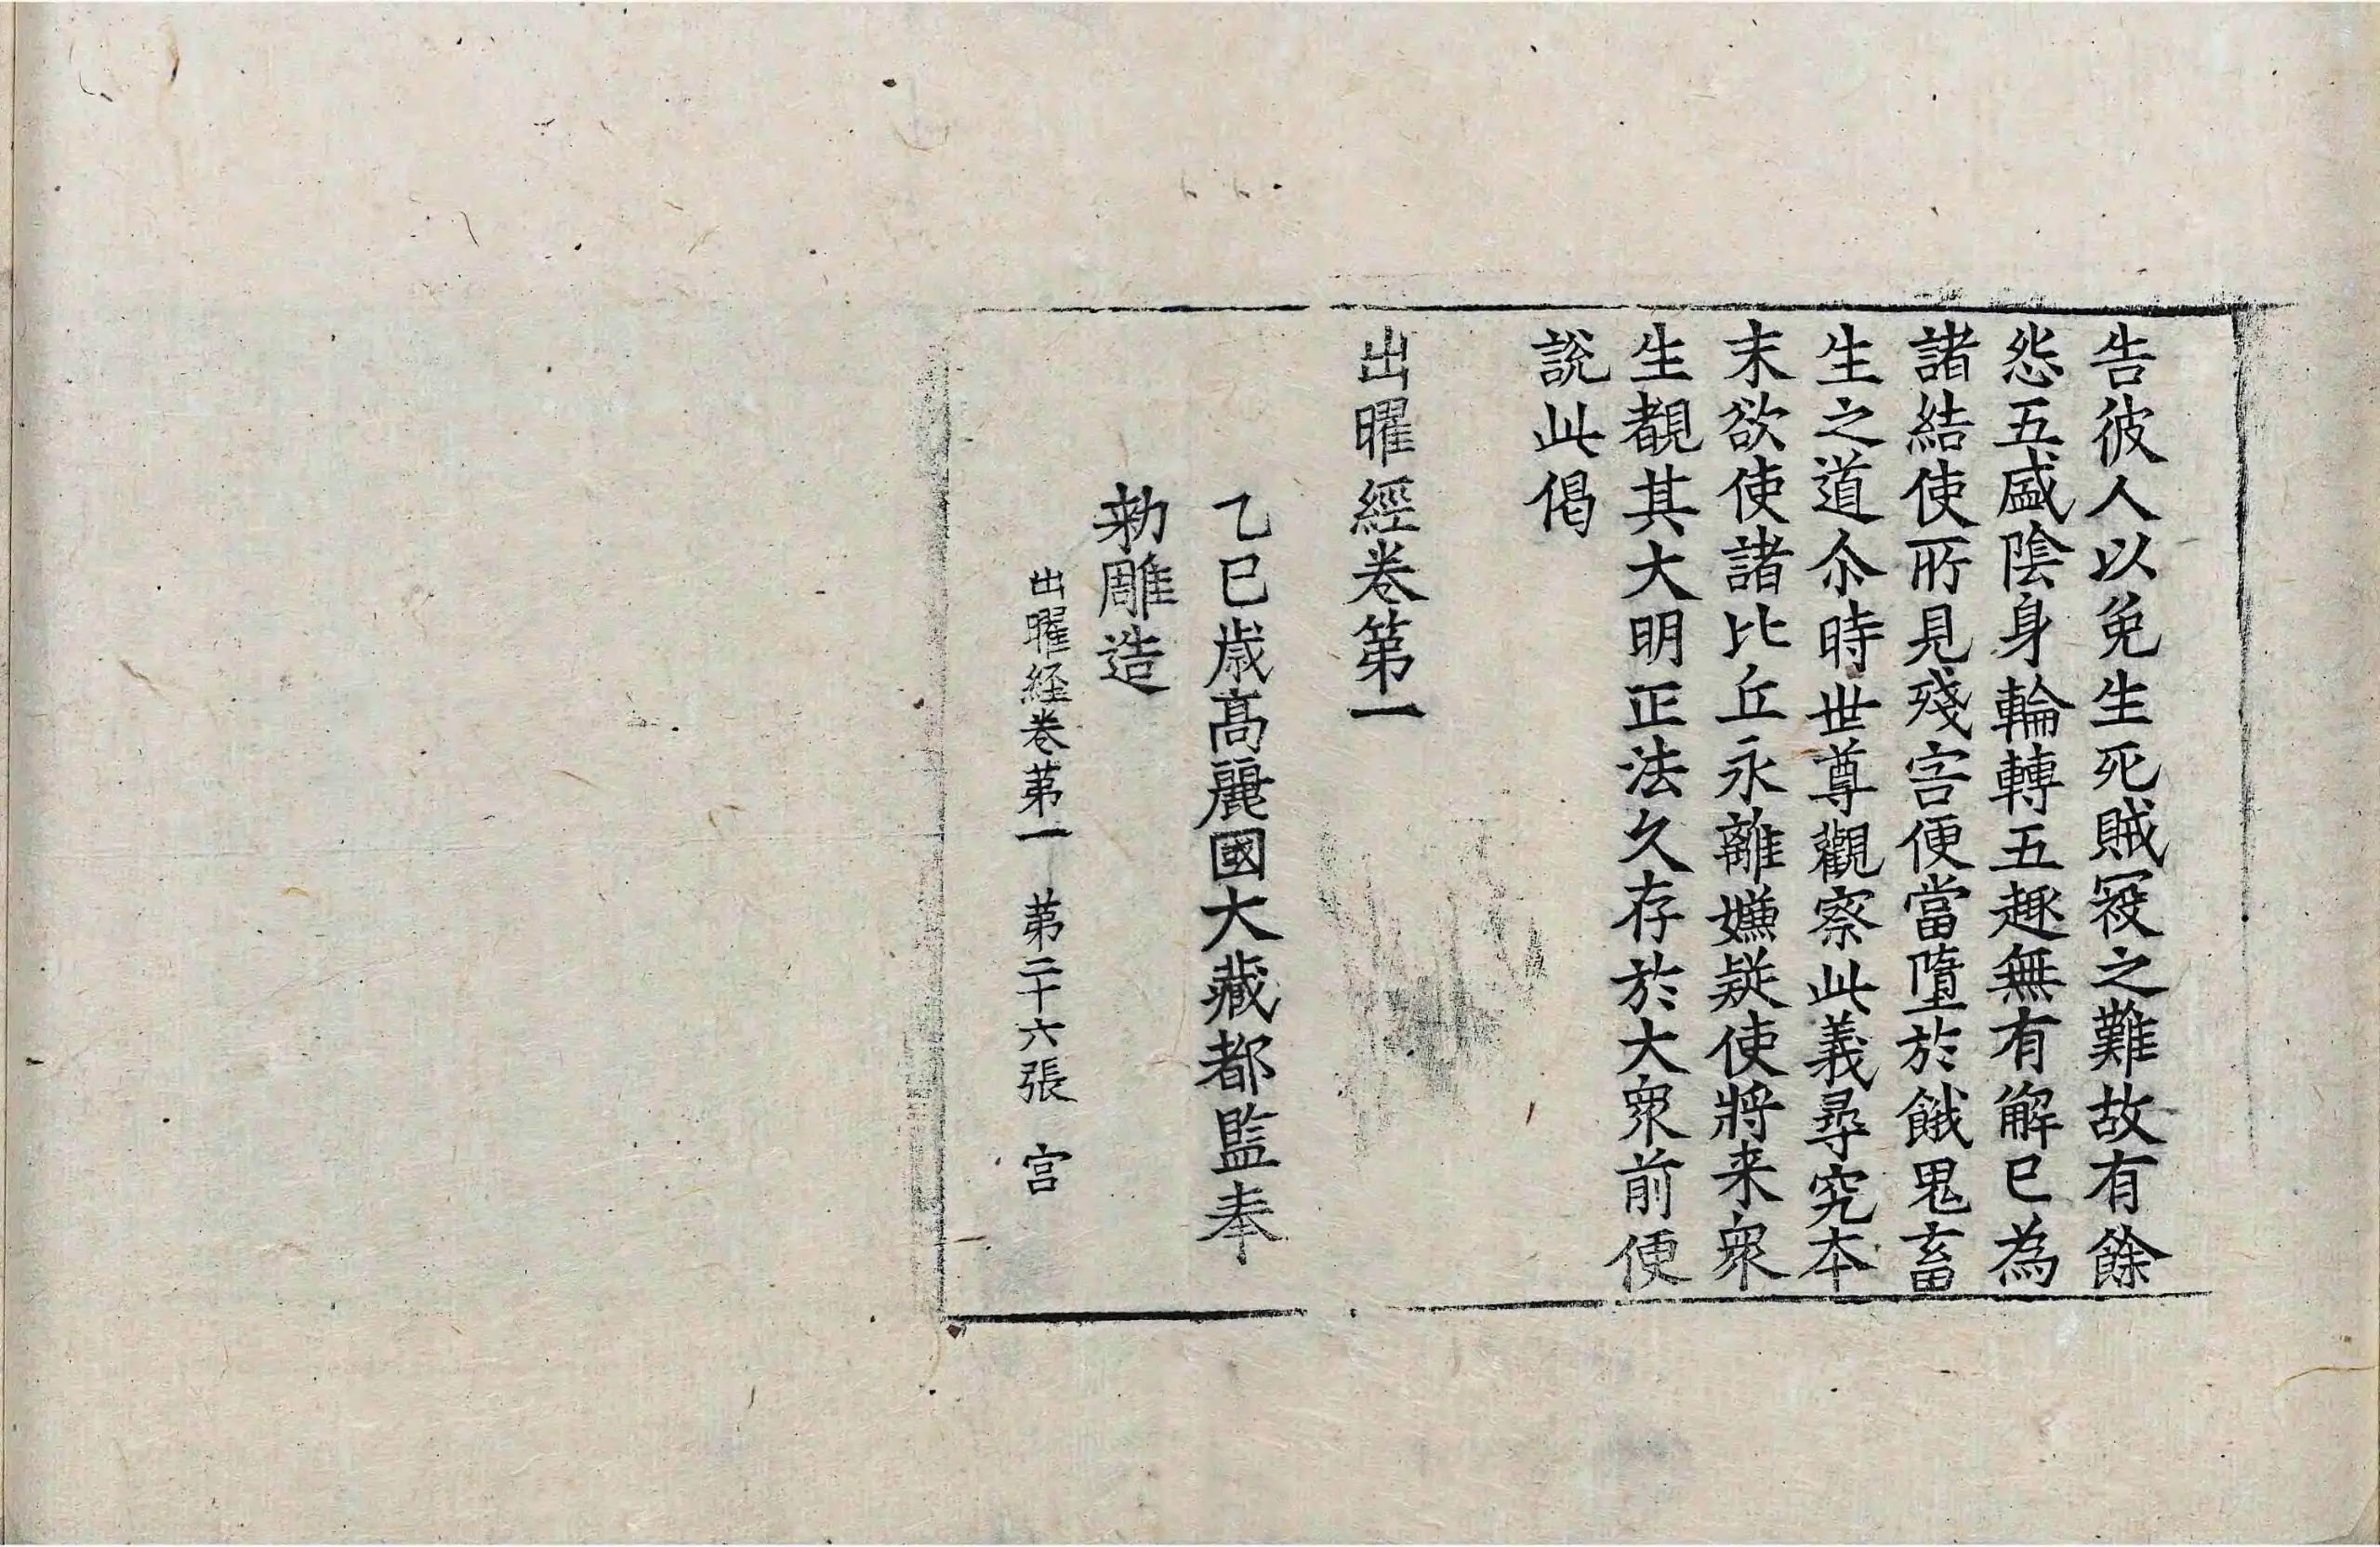 告彼人以免生死賊㓂之難故有餘
怨五盛陰身輪轉五趣無有解已為
諸結使所見殘害便當墮於餓鬼畜
生之道尒時世尊觀察此義尋究本
末欲使諸比丘永離嫌疑使將来衆
生覩其大明正法久存於大衆前便
說此偈
出曜經卷第一
乙巳歳髙麗國大藏都監奉
勅雕造
出曜経卷苐一 苐二十六張 宫